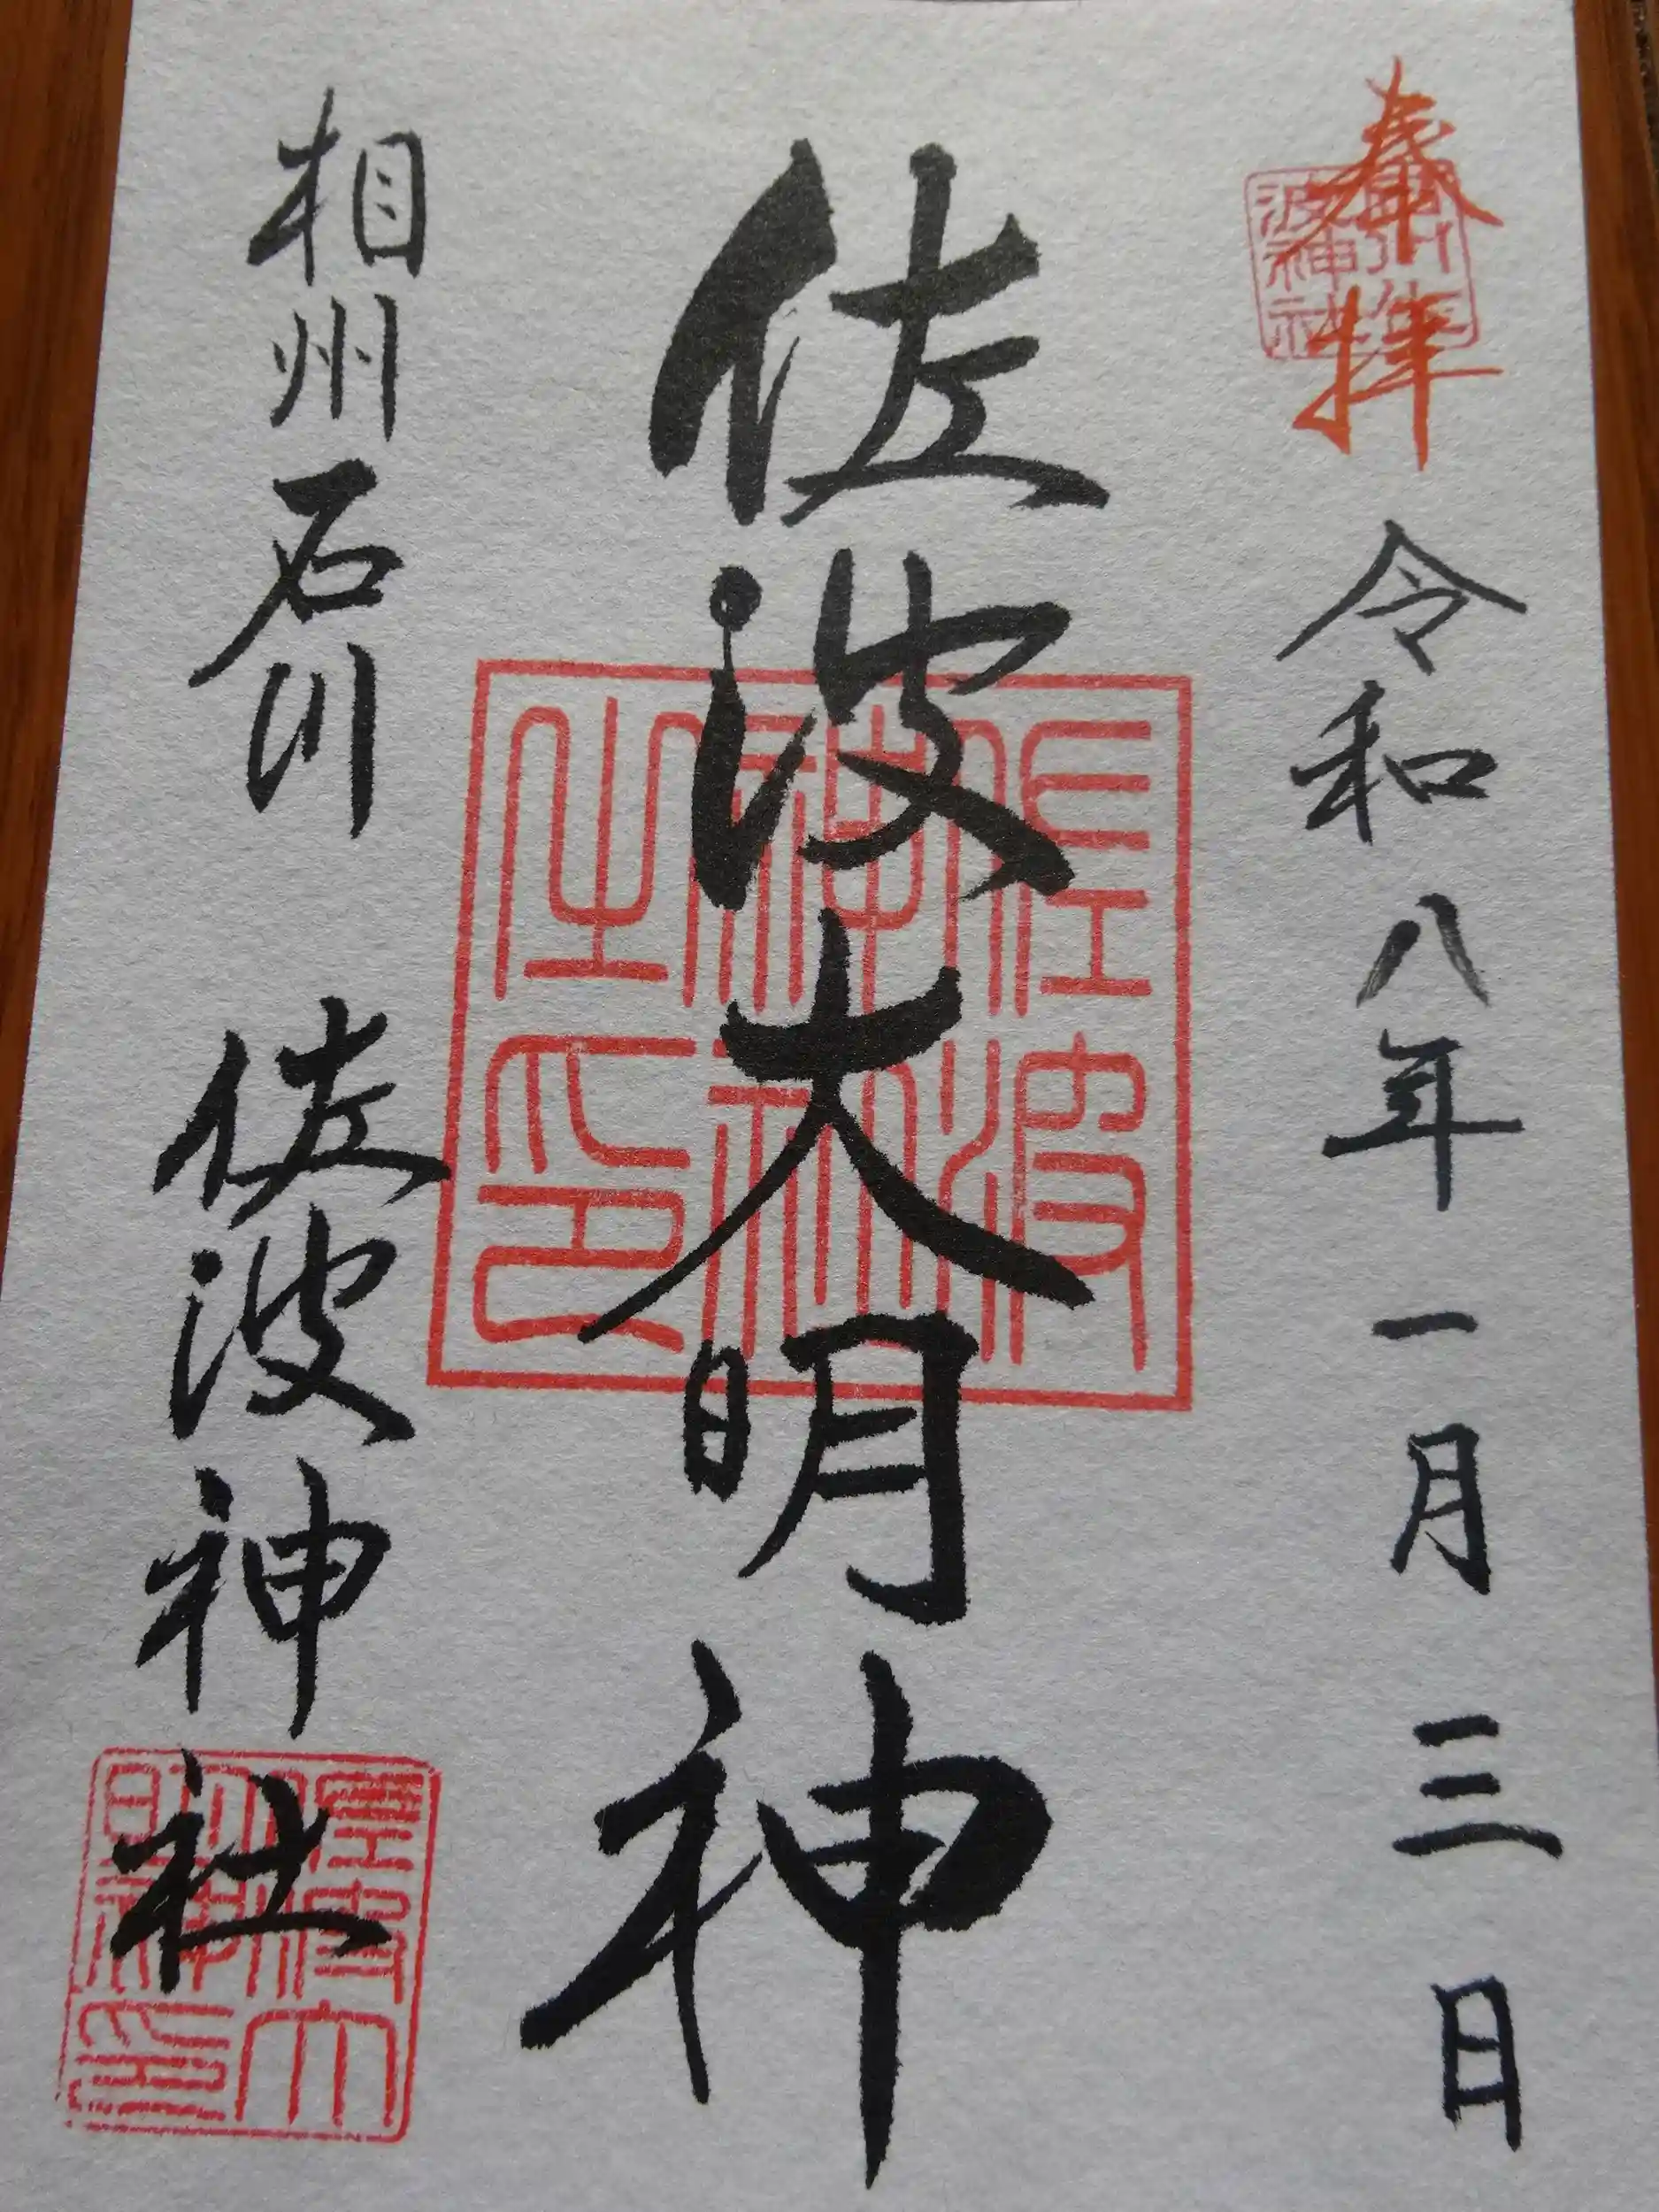 奉拝
令和八年一月三日
佐波大明神
佐波神社之印
相州石川 佐波神社
佐波大明神印